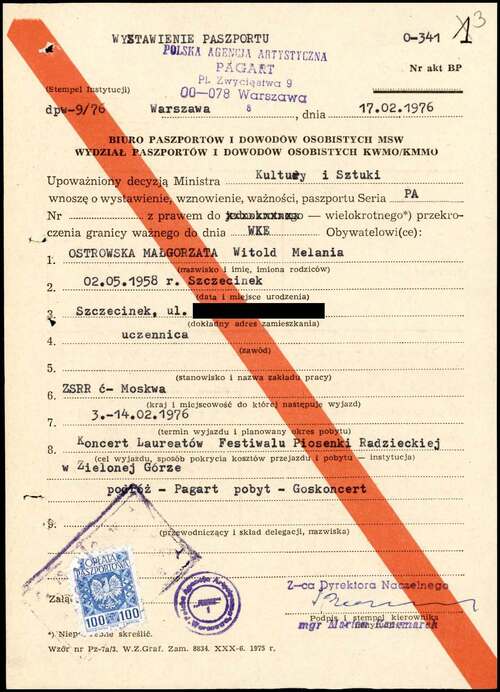 WYSTAWIENIE PASZPORTU
O-341 13
POLSKA AGENCJA ARTYSTYCZNA
PAGART
Pl. Zwycięstwa 9
00—078 Warszawa
8
Nr akt BP
(Stempel Instytucji)
dpw-9/76 Warszawa, dnia 17.02.1976
BIURO PASZPORTÓW I DOWODÓW OSOBISTYCH MSW
WYDZIAŁ PASZPORTÓW I DOWODÓW OSOBISTYCH KWMO/KMMO
Upoważniony decyzją Ministra Kultury i Sztuki
wnoszę o wystawienie, wznowienie, ważności, paszportu Seria PA
Nr z prawem do — wielokrotnego*) przekro-
czenia granicy ważnego do dnia WKE Obywatelowi(ce):
1. OSTROWSKA MAŁGORZATA Witold Melania
(nazwisko i imię, imiona rodziców)
2. 02.05.1958 r. Szczecinek
(data i miejsce urodzenia)
3. Szczecinek, ul.
(dokładny adres zamieszkania)
4. uczennica
(zawód)
5.
(stanowisko i nazwa zakładu pracy)
6. ZSRR ć- Moskwa
(kraj i miejscowość do której następuje wyjazd)
7. 3.-14.02.1976
(termin wyjazdu i planowany okres pobytu)
8. Koncert Laureatów Festiwalu Piosenki Radzieckiej
(cel wyjazdu, sposób pokrycia kosztów przejazdu i pobytu — instytucja)
w Zielonej Górze
podróż - Pagart pobyt - Goskoncert
9.
(przewodniczący i skład delegacji, nazwiska)
OPŁATA
PASZPORTOWA
100 100
Załą
Z-ca Dyrektora Naczelnego
Podpis i stempel kierownika
mgr
*) Niepotrzebne skreślić.
Wzór nr Pz-7a/3. W.Z.Graf. Zam. 8834. XXX-6. 1975 r.